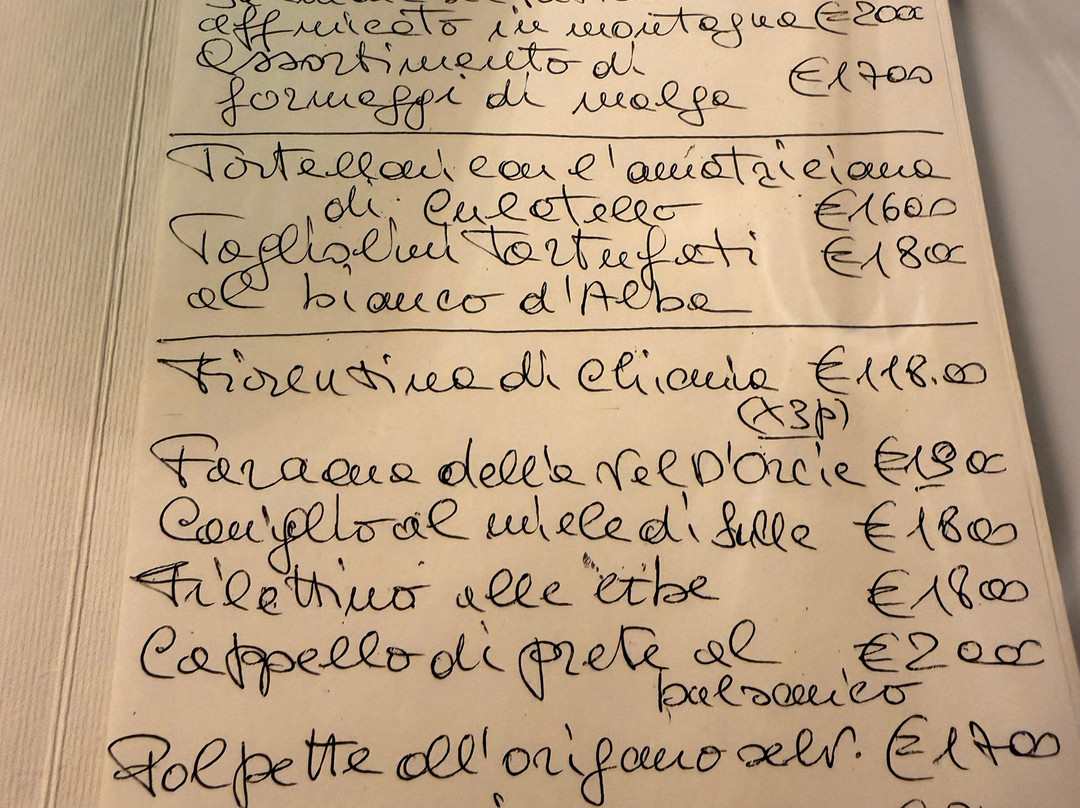 affumicato in montagna €2000
Assortimento di
formaggi di malga €1700
Tortelloni con l'amatriciana
di Culatello €1600
Tagliolini Tartufati €1800
al bianco d'Alba
Fiorentina di Chianina €118.00
(x3p)
Faraona della Val D'Orcia €1900
Coniglio al miele di sulla €1800
Filettino alle erbe €1800
Cappello di prete al €2000
balsamico
Polpette all'origano selv. €1700